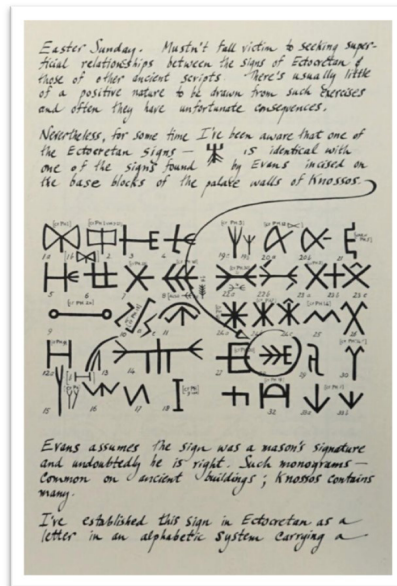 Easter Sunday. Mustn't fall victim to seeking super-
ficial relationships between the signs of Ectocretan &
those of other ancient scripts. There's usually little
of a positive nature to be drawn from such exercises
and often they have unfortunate consequences.
Nevertheless, for some time I've been aware that one of
the Ectocretan signs — is identical with
one of the signs found by Evans incised on
the base blocks of the palace walls of Knossos.
Evans assumes the sign was a mason's signature
and undoubtedly he is right. Such monograms —
common on ancient buildings; Knossos contains
many.
I've established this sign in Ectocretan as a
letter in an alphabetic system carrying a